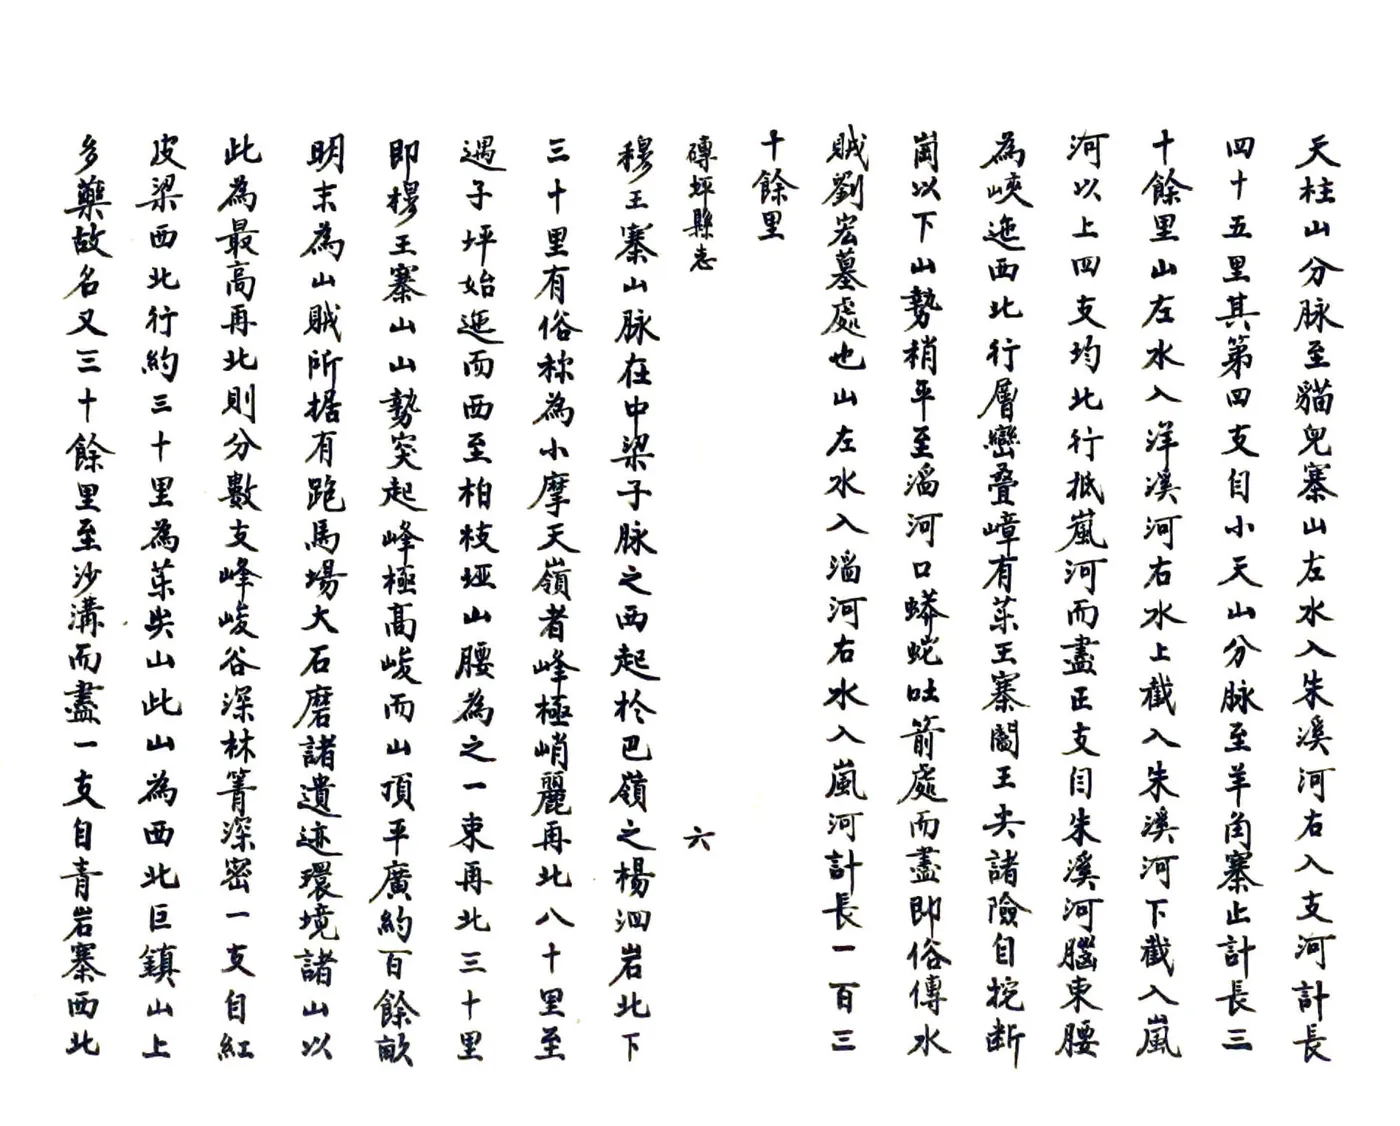 天柱山分脉至貓兒寨山左水入朱溪河右入支河計長
四十五里其第四支自小天山分脉至羊角寨止計長三
十餘里山左水入洋溪河右水上截入朱溪河下截入嵐
河以上四支均北行抵嵐河而盡正支自朱溪河腦東腰
為峽迤西北行層巒叠嶂有藥王寨閻王夫諸險自挖断
崗以下山勢稍平至湽河口蟒蛇吐箭處而盡即俗傳水
賊劉宏墓處也山左水入湽河右水入嵐河計長一百三
十餘里
磚坪縣志
六
穆王寨山脉在中梁子脉之西起於巴嶺之楊泗岩北下
三十里有俗称為小摩天嶺者峰極峭麗再北八十里至
遇子坪始迤而西至柏枝埡山腰為之一束再北三十里
即穆王寨山山勢突起峰極高峻而山頂平廣約百餘畝
明末為山賊所据有跑馬場大石磨諸遺迹環境諸山以
此為最高再北則分數支峰峻谷深林箐深密一支自紅
皮梁西北行約三十里為藥柴山此山為西北巨鎮山上
多藥故名又三十餘里至沙溝而盡一支自青岩寨西北